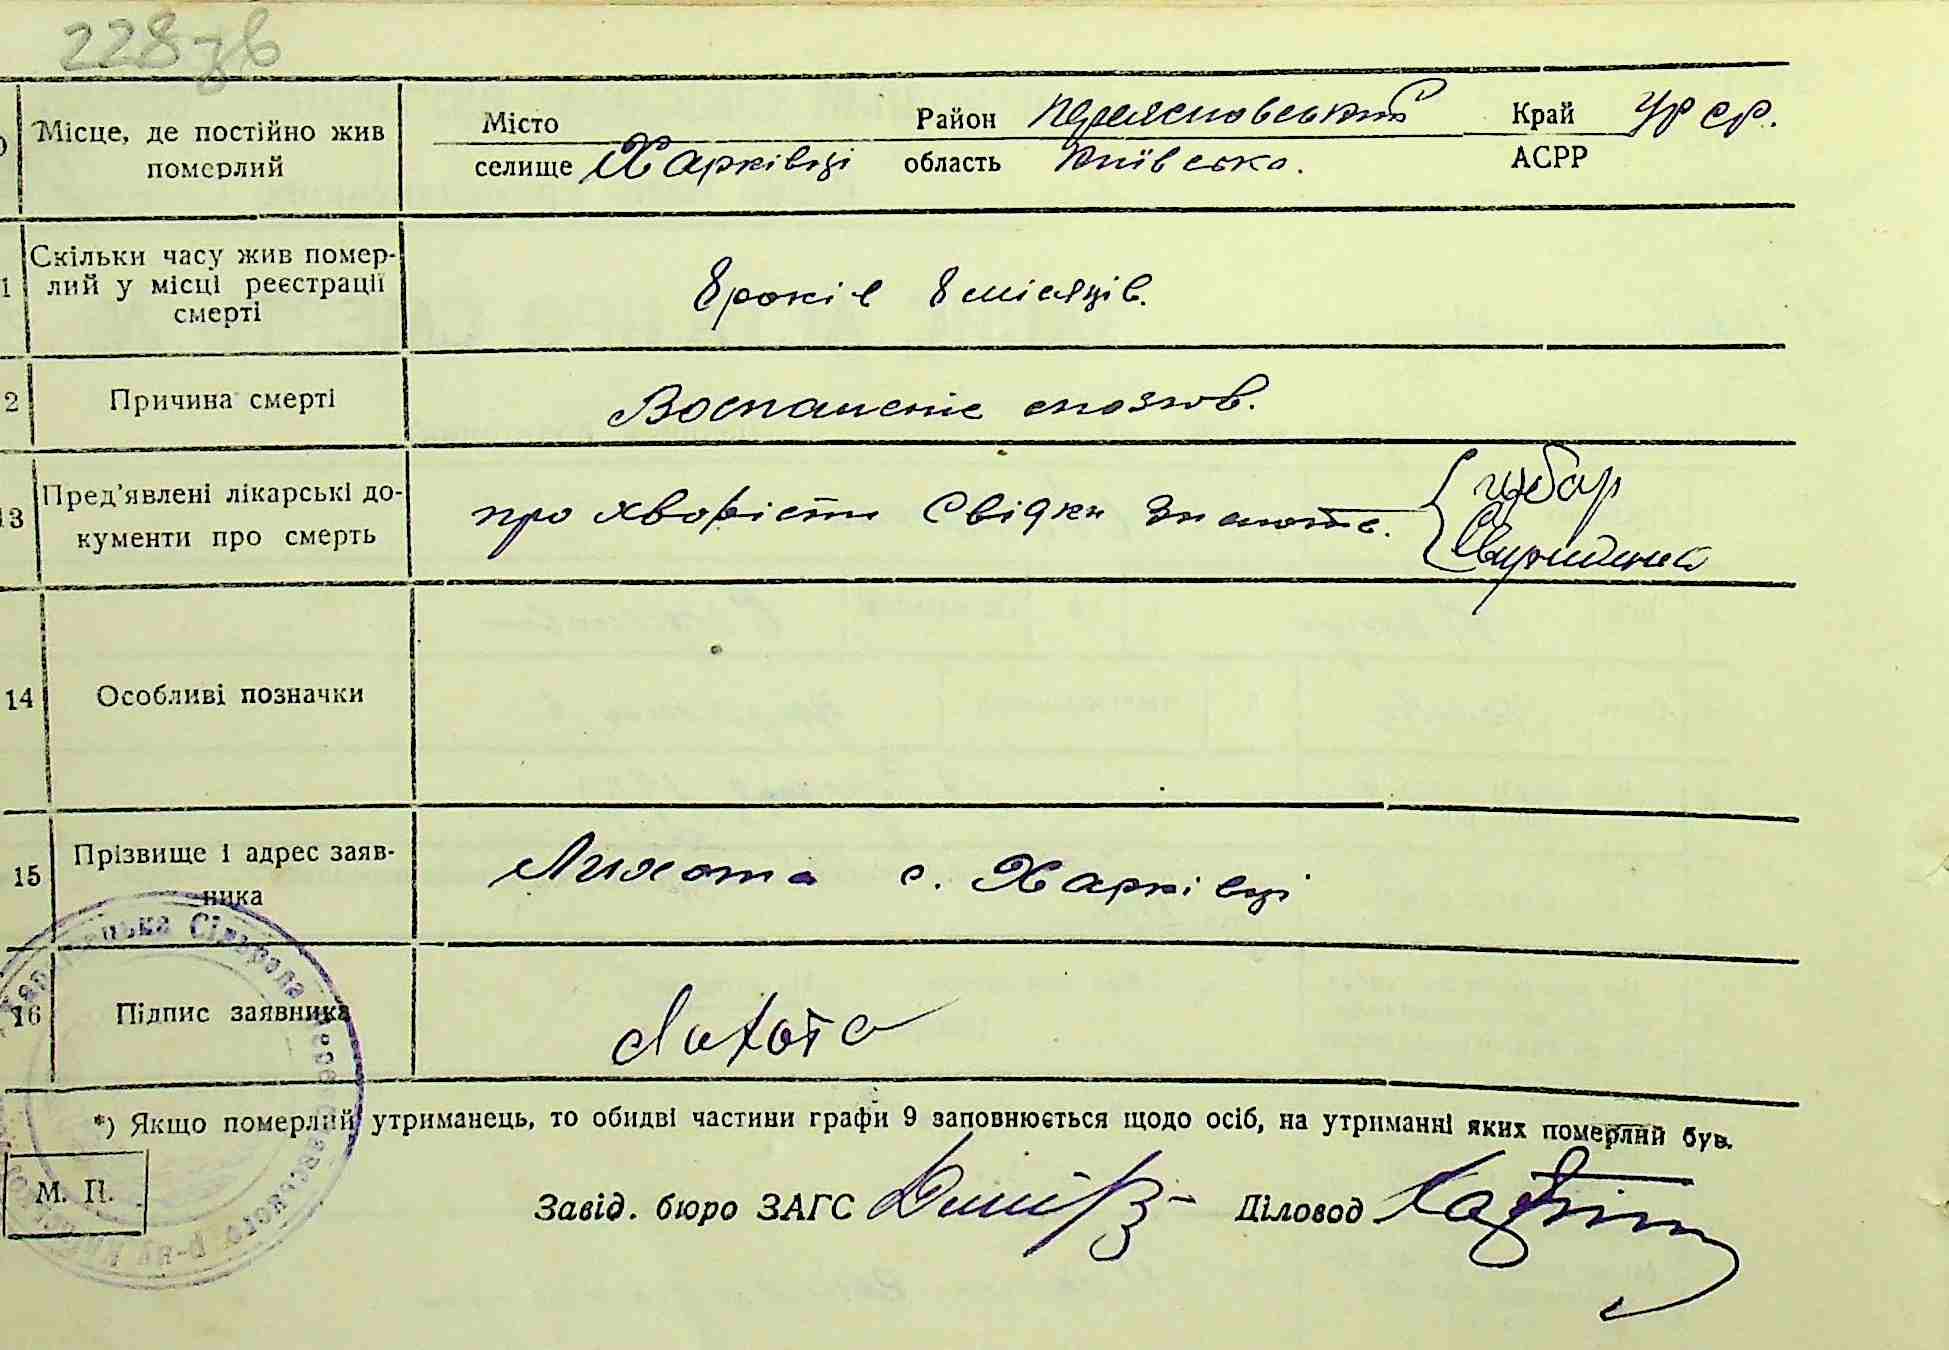 228 зв
Місце, де постійно жив
померлий
Місто
селище Харківці
Район Переяславський
область Київська.
Край УРСР.
АСРР
1 Скільки часу жив помер-
лий у місці реєстрації
смерті
8 років 8 місяців.
2 Причина смерті
Воспаленіє мозгов.
13 Пред'явлені лікарські до-
кументи про смерть
про хворість Свідки знають. Цибар
14 Особливі позначки
15 Прізвище і адрес заяв-
ника
Лихота с. Харківці
16 Підпис заявника
Лихота
*) Якщо померлий утриманець, то обидві частини графи 9 заповнюється щодо осіб, на утриманні яких померлий був.
М. П.
Завід. бюро ЗАГС
Діловод
Сільрада